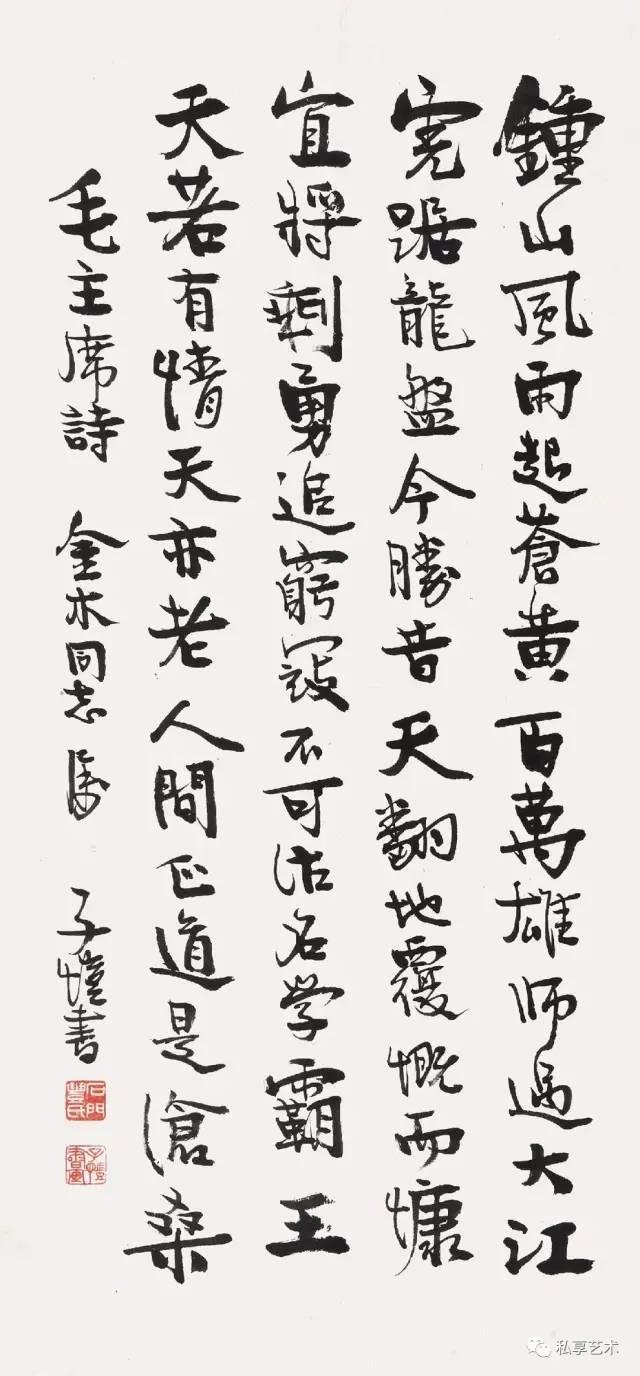 鍾山風雨起蒼黄百萬雄師過大江
虎踞龍盤今勝昔天翻地覆慨而慷
宜將剩勇追窮寇不可沽名学霸王
天若有情天亦老人間正道是滄桑
毛主席詩 金木同志属 子愷書
石門豐氏
子愷書畫
私享艺术